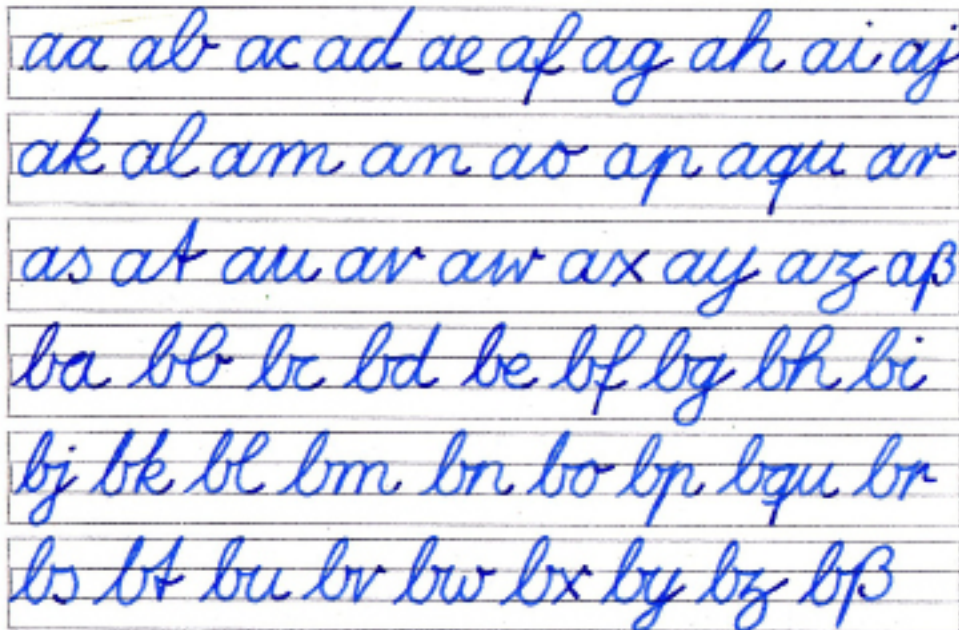 aa ab ac ad ae af ag ah ai aj
ak al am an ao ap aqu ar
as at au av aw ax ay az aß
ba bb bc bd be bf bg bh bi
bj bk bl bm bn bo bp bqu br
bs bt bu bv bw bx by bz bß